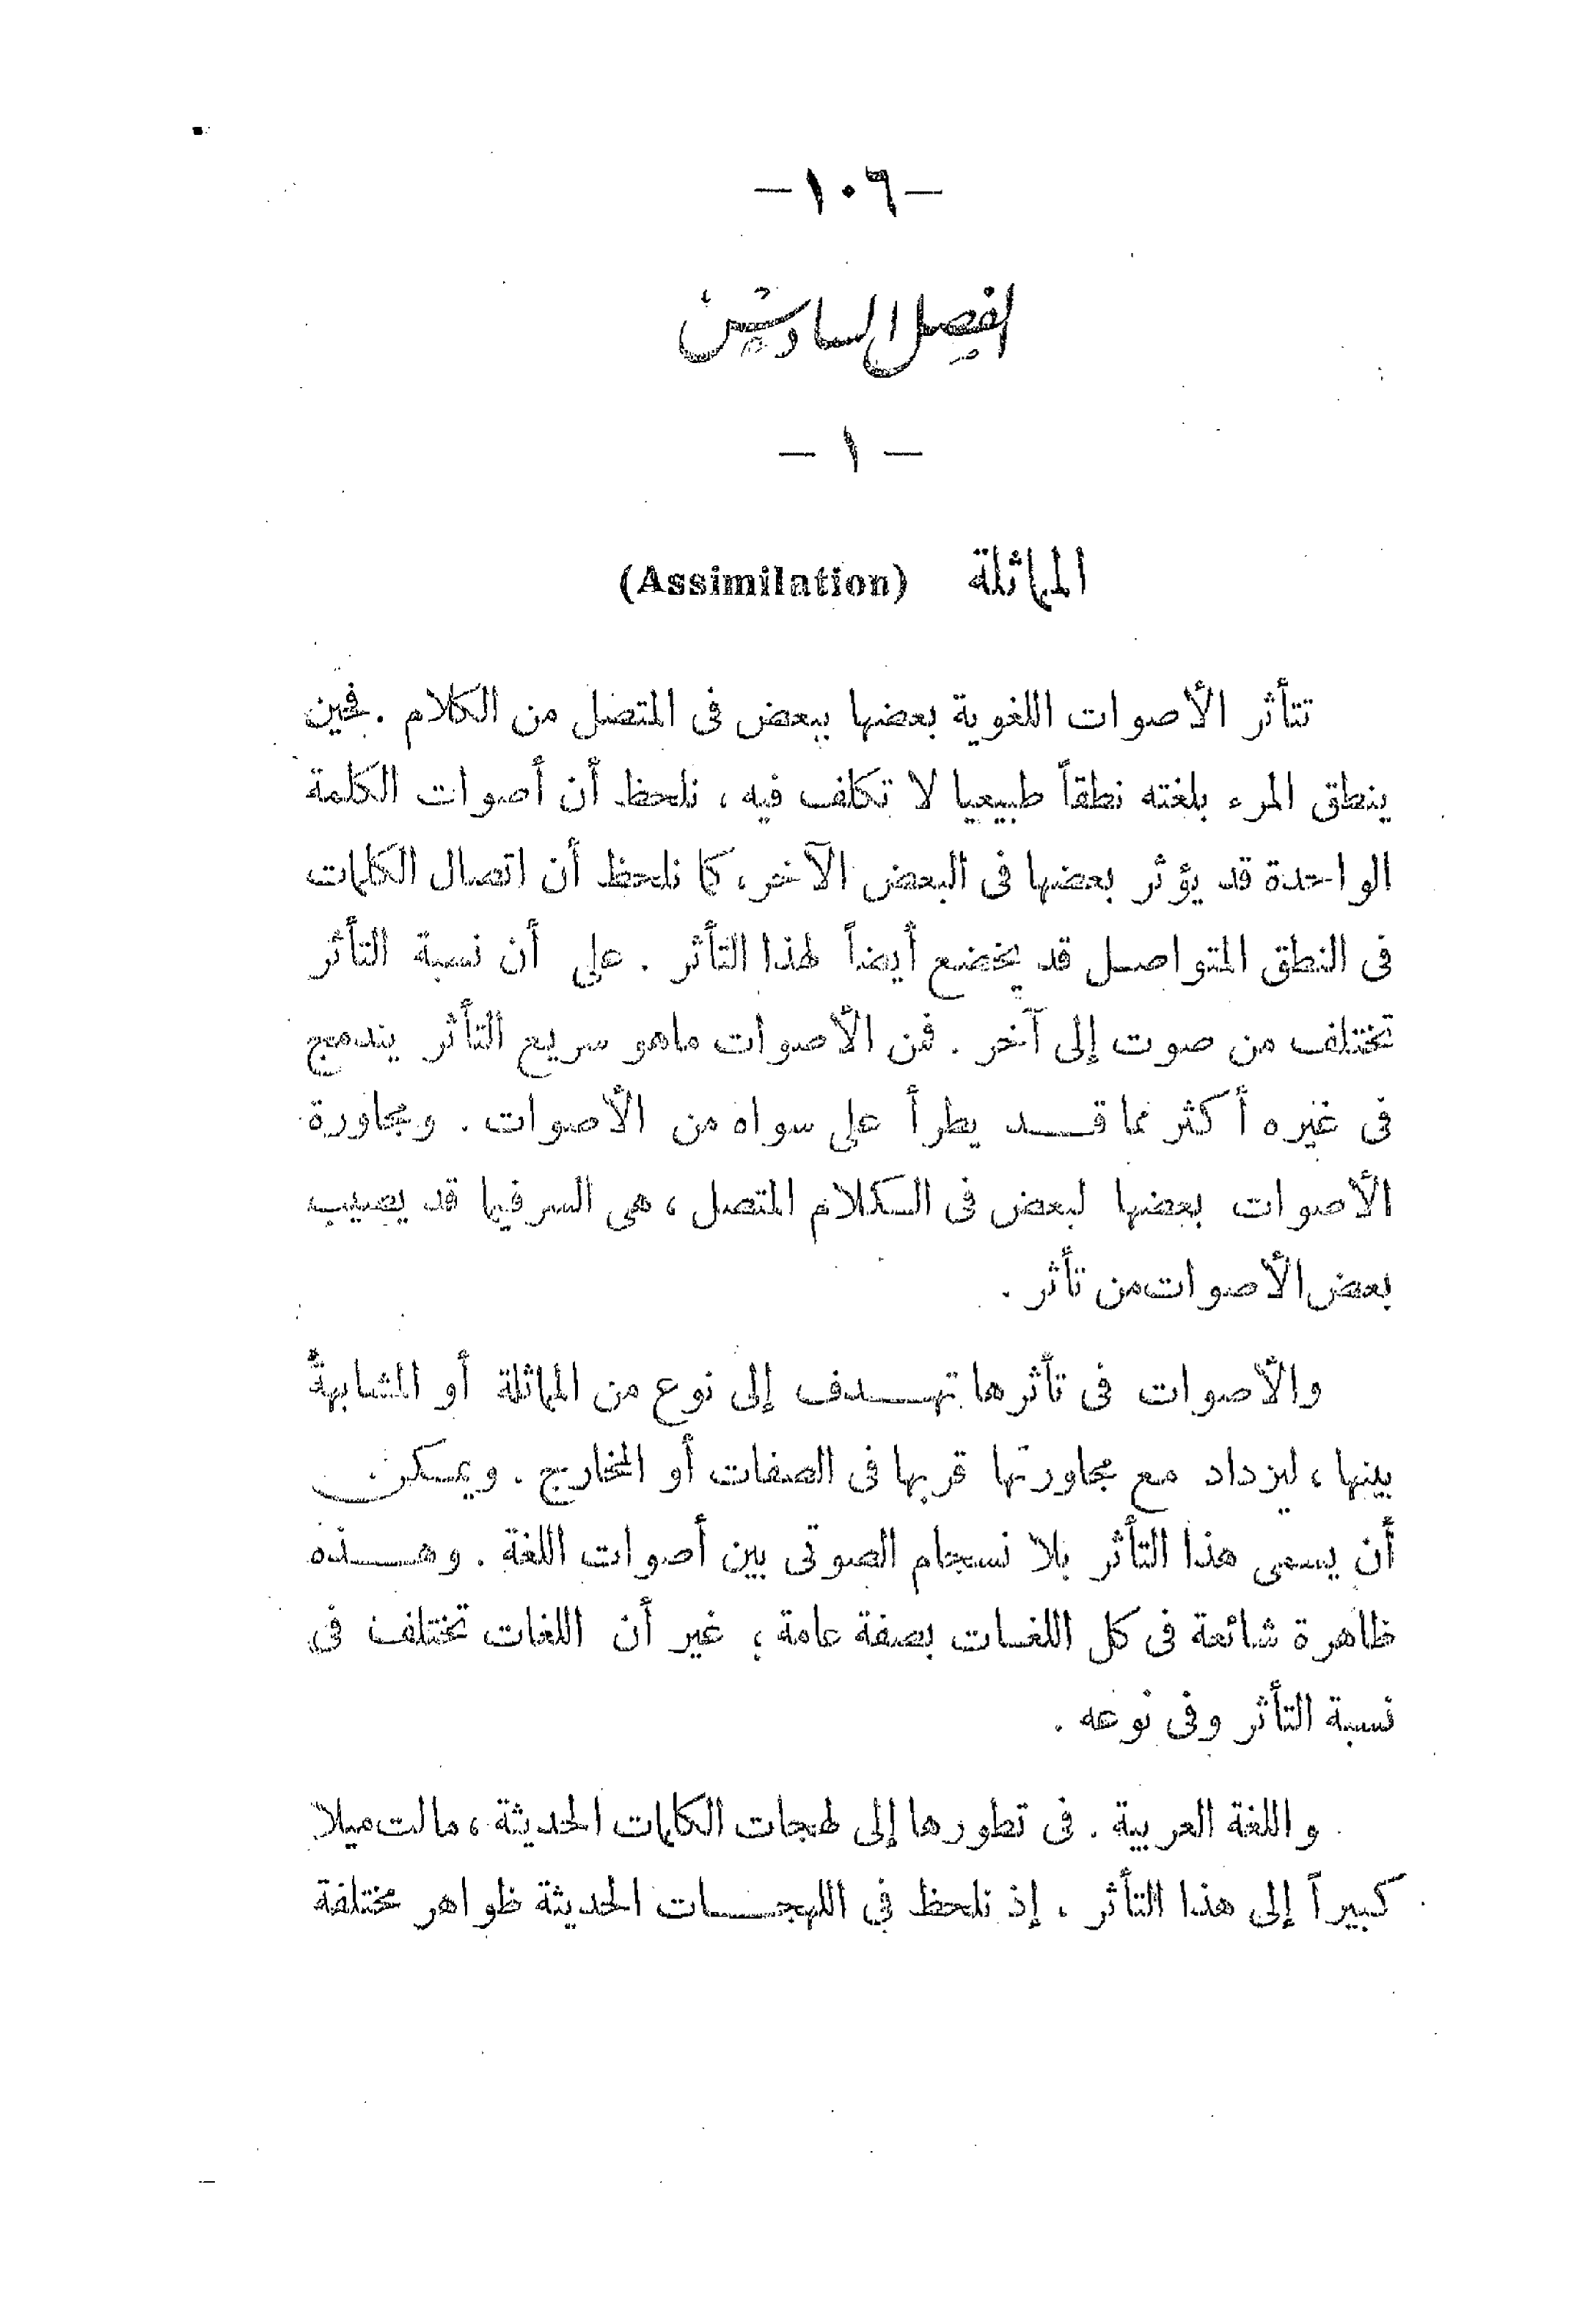 —١٠٦—
الفصل السادس
— ١ —
المماثلة (Assimilation)
تتأثر الأصوات اللغوية بعضها ببعض فى المتصل من الكلام . فحين
ينطق المرء بلغته نطقاً طبيعيا لا تكلف فيه ، نلحظ أن أصوات الكلمة
الواحدة قد يؤثر بعضها فى البعض الآخر ، كما نلحظ أن اتصال الكلمات
فى النطق المتواصل قد يخضع أيضاً لهذا التأثر . على أن نسبة التأثر
تختلف من صوت إلى آخر . فمن الأصوات ماهو سريع التأثر يندمج
فى غيره أكثر مما قد يطرأ على سواه من الأصوات . ومجاورة
الأصوات بعضها لبعض فى الكلام المتصل ، هى السر فيما قد يصيب
بعض الأصوات من تأثر .
والأصوات فى تأثرها تهدف إلى نوع من المماثلة أو المشابهة
بينها ، ليزداد مع مجاورتها قربها فى الصفات أو المخارج . ويمكن
أن يسمى هذا التأثر بلانسجام الصوتى بين أصوات اللغة . وهذه
ظاهرة شائعة فى كل اللغات بصفة عامة ؛ غير أن اللغات تختلف فى
نسبة التأثر وفى نوعه .
واللغة العربية . فى تطورها إلى لهجات الكلمات الحديثة ، مالت ميلا
كبيراً إلى هذا التأثر . إذ نلحظ فى اللهجات الحديثة ظواهر مختلفة